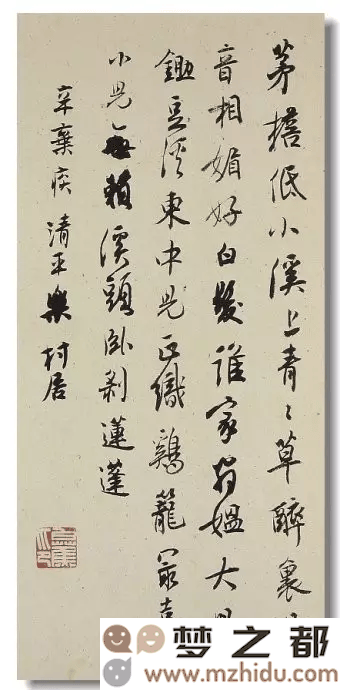 茅檐低小溪上青々草醉裏
音相媚好白髮誰家翁媼大兒
鋤豆溪東中兒正織鷄籠最喜
小兒無賴溪頭臥剥蓮蓬
辛棄疾清平樂村居
梦之都
www.mzhidu.com